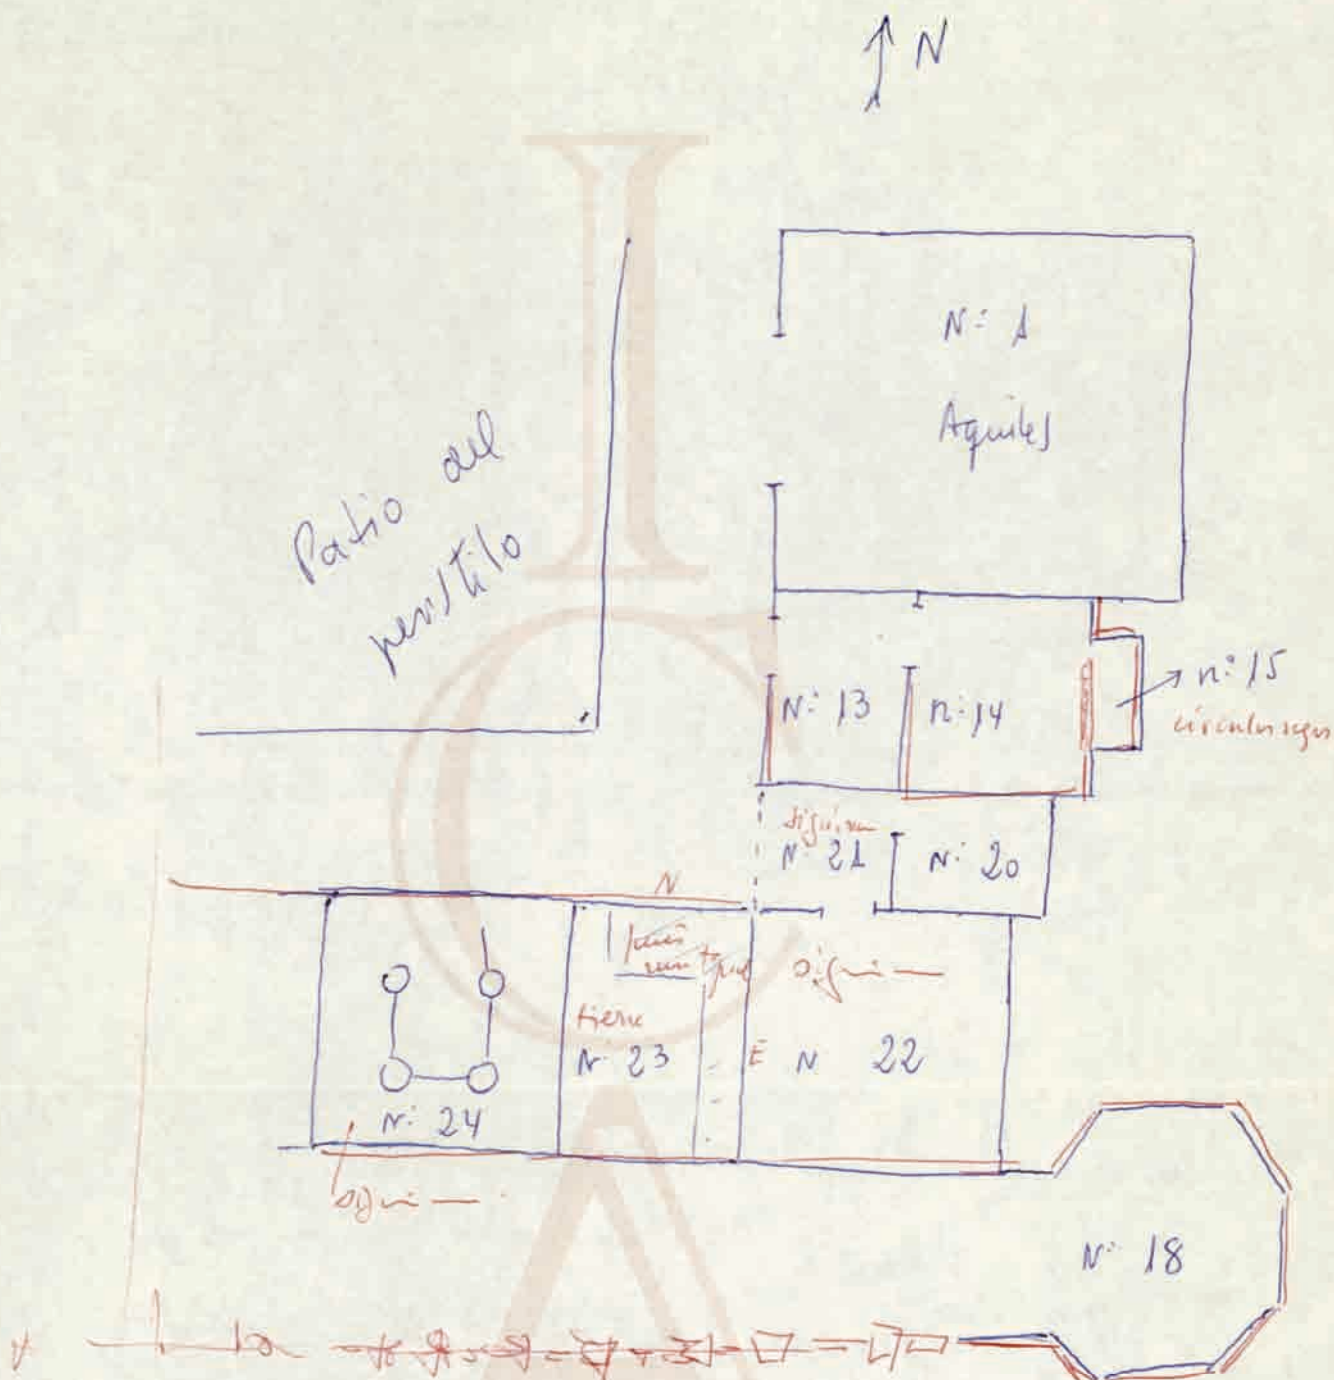 N
N: 1
Aquiles
Patio del
peristilo
N: 13
n: 14
n: 15
N: 21
N: 20
N
tiene
N: 23
E
N 22
N: 24
N: 18
I
C
A